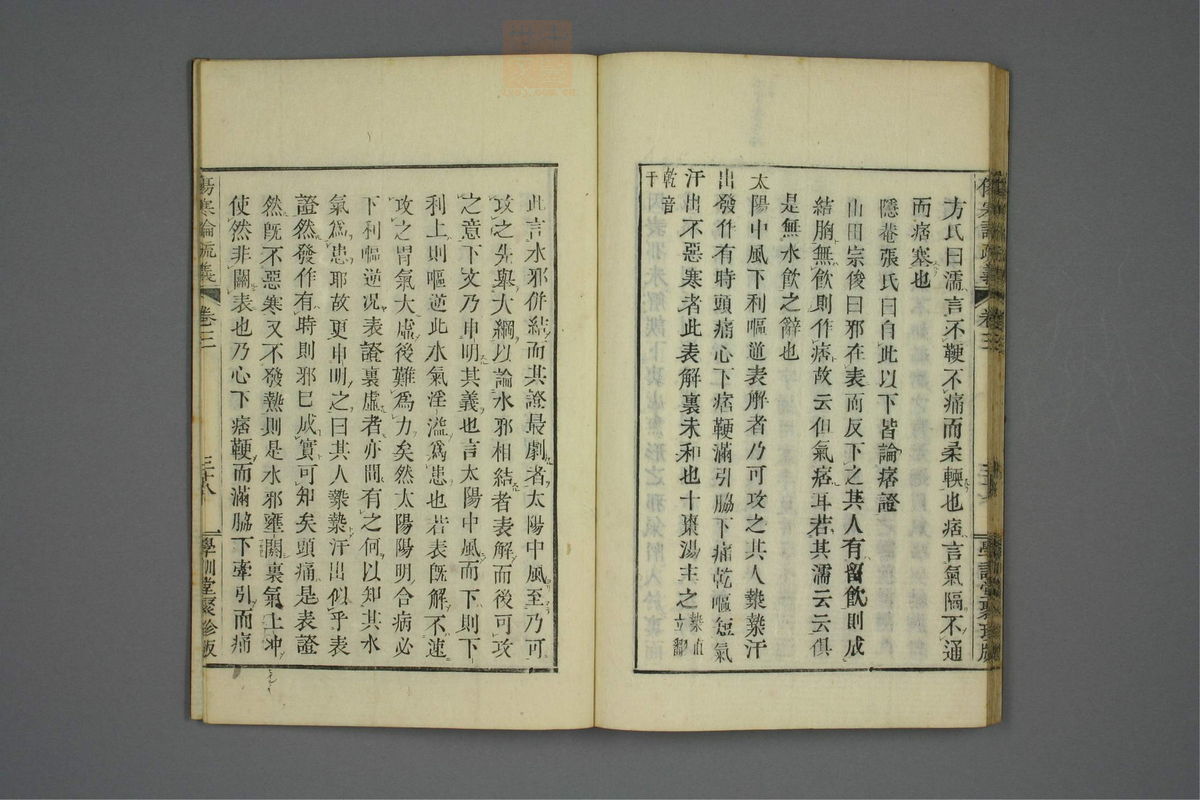 方氏曰濡言不鞕不痛而柔輭也痞言氣隔不通
而痞塞也
隱菴張氏曰自此以下皆論痞證
山田宗俊曰邪在表而反下之其人有留飲則成
結胸無飲則作痞故云但氣痞耳若其濡云云俱
是無水飲之辭也
太陽中風下利嘔逆表解者乃可攻之其人漐漐汗
出發作有時頭痛心下痞鞕滿引脇下痛乾嘔短氣
汗出不惡寒者此表解裏未和也十棗湯主之漐直立翻
乾音干
此言水邪併結而其證最劇者太陽中風至乃可
攻之先舉大綱以論水邪相結者表解而後可攻
之意下文乃申明其義也言太陽中風而下則下
利上則嘔逆此水氣淫溢爲患也若表既解不速
攻之胃氣大虛後難爲力矣然太陽陽明合病必
下利嘔逆況表證裏虛者亦間有之何以知其水
氣爲患耶故更申明之曰其人漐漐汗出似乎表
證然發作有時則邪已成實可知矣頭痛是表證
然既不惡寒又不發熱則是水邪壅閼裏氣上冲
使然非關表也乃心下痞鞕而滿脇下牽引而痛
傷寒論疏義
卷三
三十八
學訓堂聚珍版